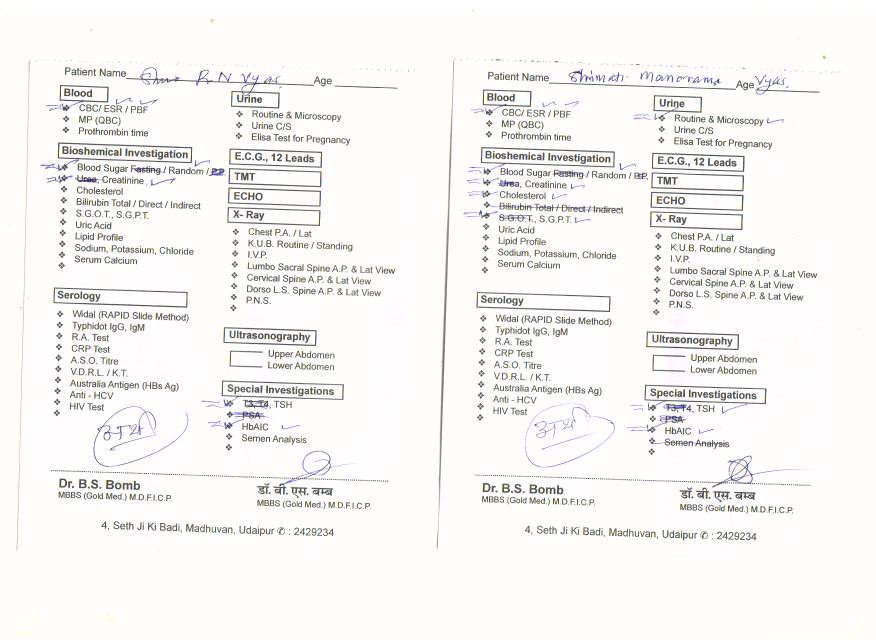 Patient Name Shri R. N Vyas Age
Blood
CBC/ ESR / PBF
MP (QBC)
Prothrombin time
Bioshemical Investigation
Blood Sugar Fasting / Random / P.P.
Urea, Creatinine
Cholesterol
Bilirubin Total / Direct / Indirect
S.G.O.T., S.G.P.T.
Uric Acid
Lipid Profile
Sodium, Potassium, Chloride
Serum Calcium
Serology
Widal (RAPID Slide Method)
Typhidot IgG, IgM
R.A. Test
CRP Test
A.S.O. Titre
V.D.R.L. / K.T.
Australia Antigen (HBs Ag)
Anti - HCV
HIV Test
Urine
Routine & Microscopy
Urine C/S
Elisa Test for Pregnancy
E.C.G., 12 Leads
TMT
ECHO
X- Ray
Chest P.A. / Lat
K.U.B. Routine / Standing
I.V.P.
Lumbo Sacral Spine A.P. & Lat View
Cervical Spine A.P. & Lat View
Dorso L.S. Spine A.P. & Lat View
P.N.S.
Ultrasonography
Upper Abdomen
Lower Abdomen
Special Investigations
T3, T4, TSH
PSA
HbAIC
Semen Analysis
Dr. B.S. Bomb
MBBS (Gold Med.) M.D.F.I.C.P.
डॉ. बी. एस. बम्ब
MBBS (Gold Med.) M.D.F.I.C.P.
4, Seth Ji Ki Badi, Madhuvan, Udaipur ✆ : 2429234
Patient Name Shrimati Manorama Age Vyas.
Blood
CBC/ ESR / PBF
MP (QBC)
Prothrombin time
Bioshemical Investigation
Blood Sugar Fasting / Random / P.P.
Urea, Creatinine
Cholesterol
Bilirubin Total / Direct / Indirect
S.G.O.T., S.G.P.T.
Uric Acid
Lipid Profile
Sodium, Potassium, Chloride
Serum Calcium
Serology
Widal (RAPID Slide Method)
Typhidot IgG, IgM
R.A. Test
CRP Test
A.S.O. Titre
V.D.R.L. / K.T.
Australia Antigen (HBs Ag)
Anti - HCV
HIV Test
Urine
Routine & Microscopy
Urine C/S
Elisa Test for Pregnancy
E.C.G., 12 Leads
TMT
ECHO
X- Ray
Chest P.A. / Lat
K.U.B. Routine / Standing
I.V.P.
Lumbo Sacral Spine A.P. & Lat View
Cervical Spine A.P. & Lat View
Dorso L.S. Spine A.P. & Lat View
P.N.S.
Ultrasonography
Upper Abdomen
Lower Abdomen
Special Investigations
T3, T4, TSH
PSA
HbAIC
Semen Analysis
Dr. B.S. Bomb
MBBS (Gold Med.) M.D.F.I.C.P.
डॉ. बी. एस. बम्ब
MBBS (Gold Med.) M.D.F.I.C.P.
4, Seth Ji Ki Badi, Madhuvan, Udaipur ✆ : 2429234